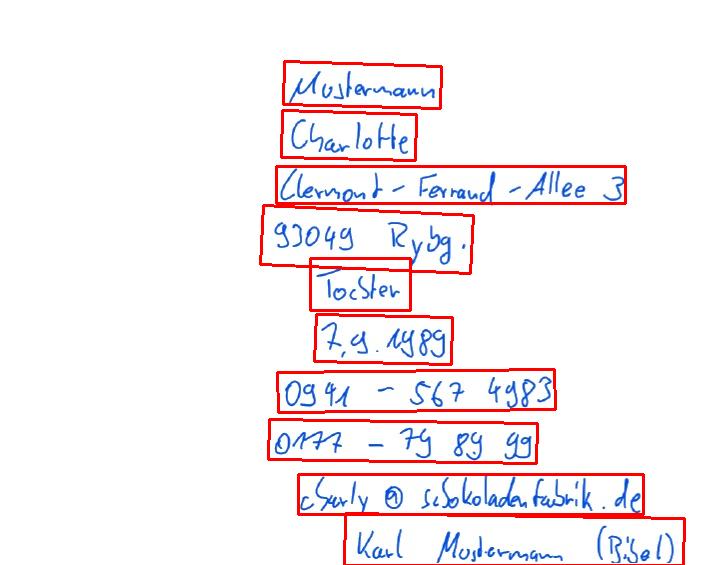 Mustermann
Charlotte
Clermont-Ferrand-Allee 3
93049 Rgbg.
Tochter
7.9.1989
0941 - 567 4983
0177 - 79 89 99
charly@schokoladenfabrik.de
Karl Mustermann (Bibel)